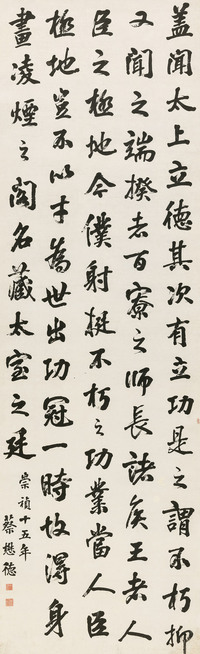 盖聞太上立德其次有立功是之謂不朽抑
又聞之端揆者百寮之師長諸侯王者人
臣之極地今僕射挺不朽之功業當人臣
極地豈不以才為世出功冠一時故得身
畫凌煙之閣名藏太室之廷
崇禎十五年
蔡懋德